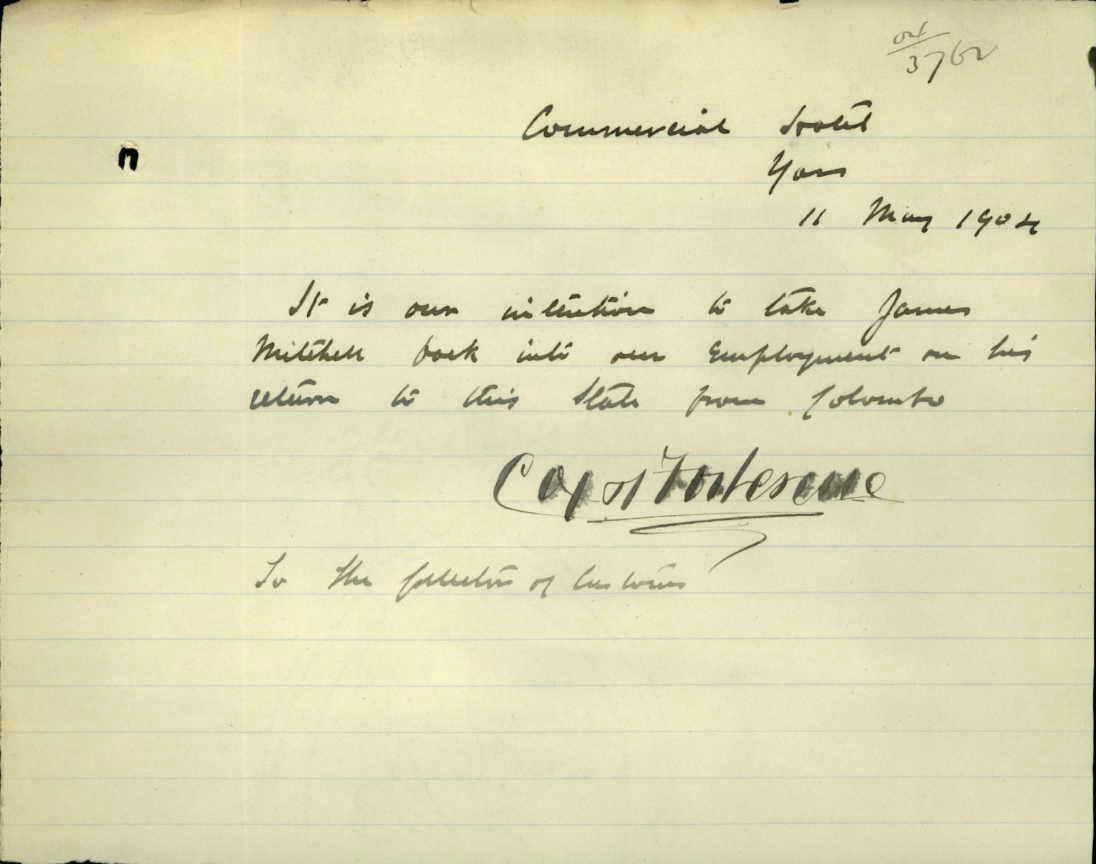 04/3762
Commercial Hotel
Yass
11 May 1904
It is our intention to take James
Mitchell back into our Employment on his
return to this State from Colombo
Fortescue
To the Collector of Customs